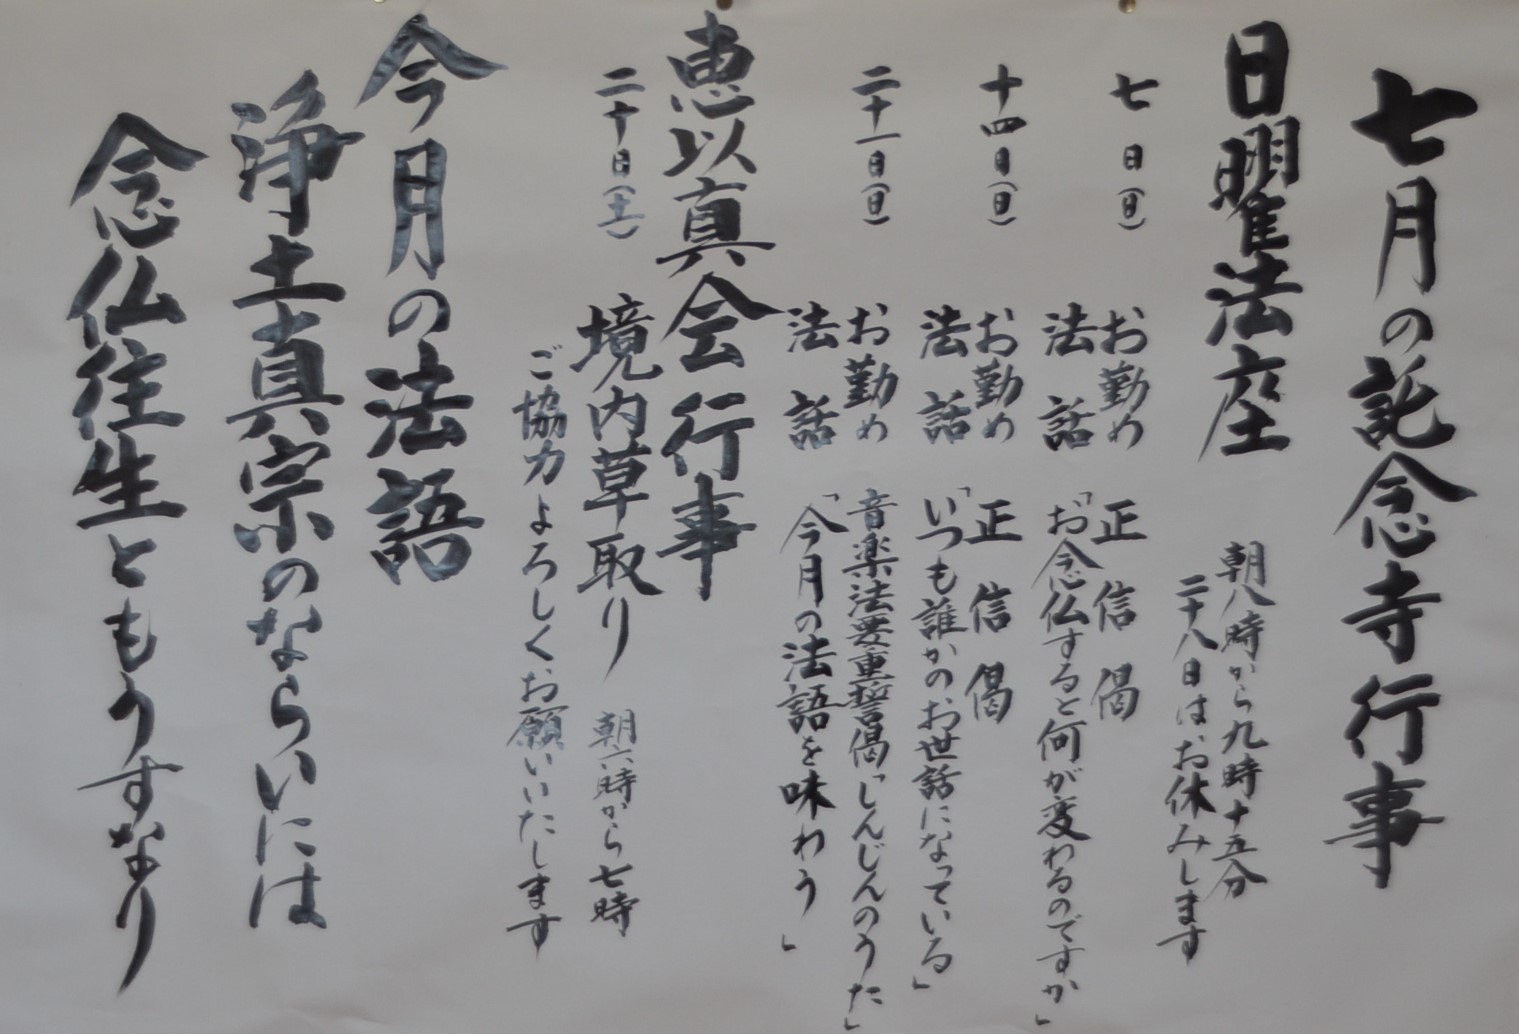 七月の託念寺行事
日曜法座
朝八時から九時十五分
二十八日は、お休みします
七日(日)
お勤め 正信偈
法話 「お念仏すると何が変わるのですか」
十四日(日)
お勤め 正信偈
法話 「いつも誰かのお世話になっている」
二十一日(日)
お勤め 音楽法要重誓偈「しんじんのうた」
法話 「今月の法語を味わう」
恵以真会行事
二十日(土) 境内草取り 朝六時から七時
ご協力よろしくお願いいたします
今月の法語
浄土真宗のならいには
念仏往生ともうすなり